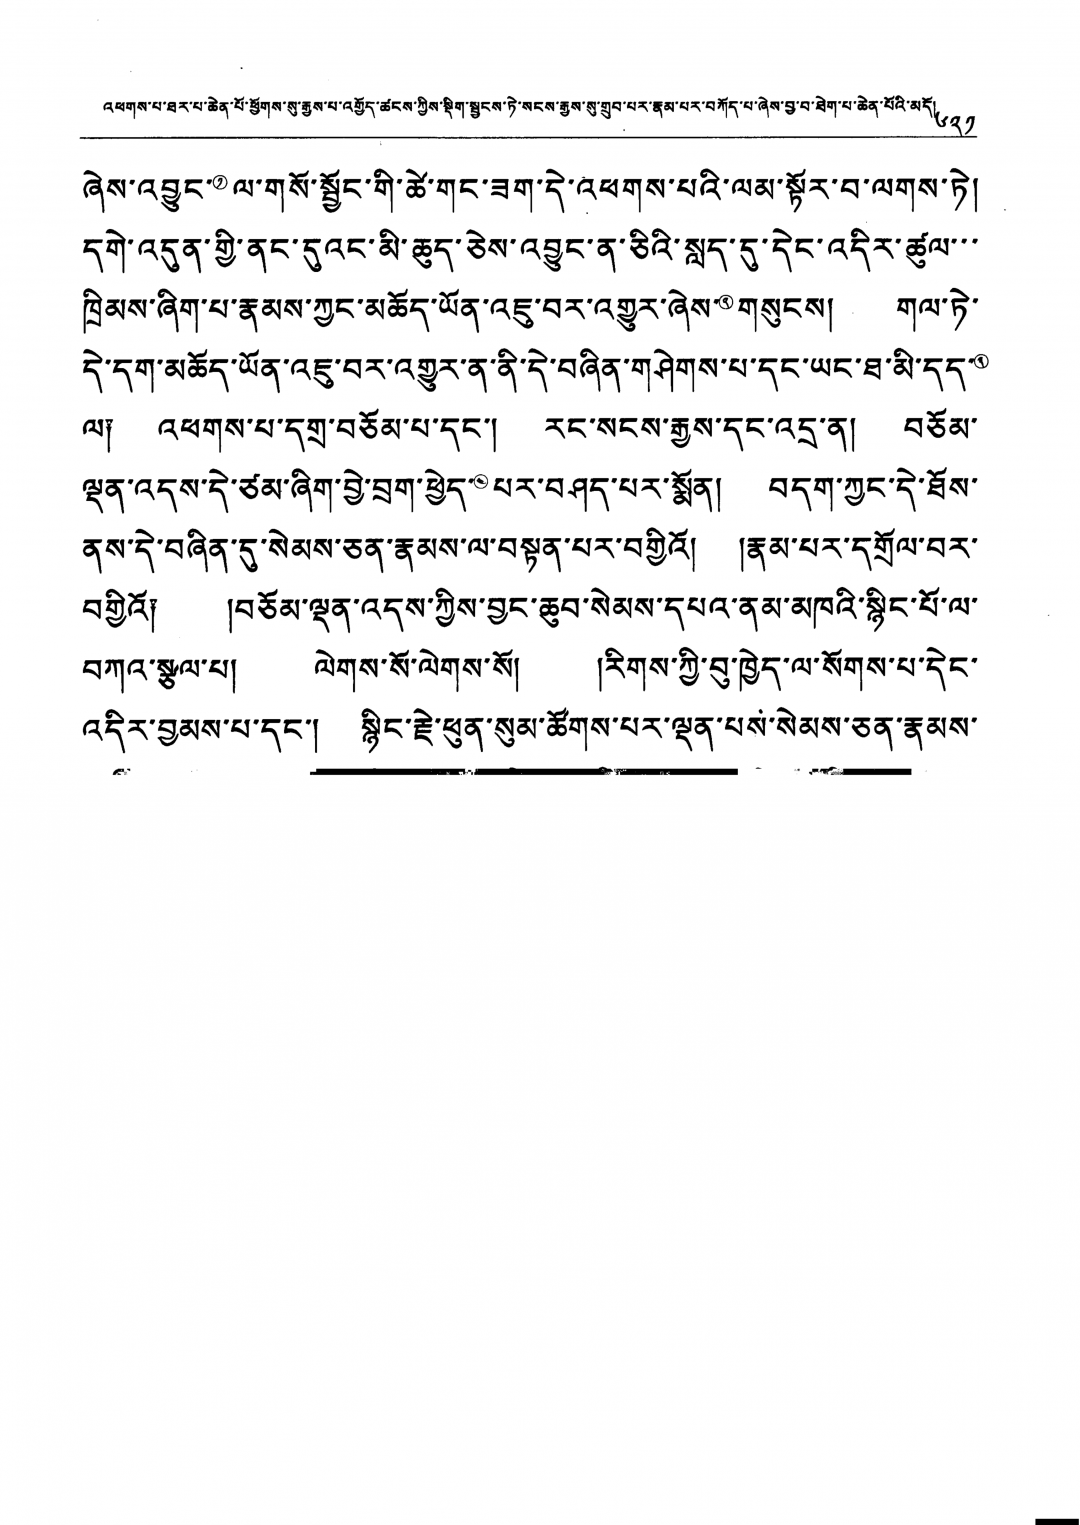 འཕགས་པ་ཐར་པ་ཆེན་པོ་ཕྱོགས་སུ་རྒྱས་པ་འགྱོད་ཚངས་ཀྱིས་སྡིག་སྦྱངས་ཏེ་སངས་རྒྱས་སུ་གྲུབ་པར་རྣམ་པར་བཀོད་པ་ཞེས་བྱ་བ་ཐེག་པ་ཆེན་པོའི་མདོ། ༧༢༡
ཞེས་འབྱུང་①ལ་གསོ་སྦྱོང་གི་ཚེ་གང་ཟག་དེ་འཕགས་པའི་ལམ་སྟོར་བ་ལགས་ཏེ།
དགེ་འདུན་གྱི་ནང་དུའང་མི་ཆུད་ཅེས་འབྱུང་ན་ཅིའི་སླད་དུ་དེང་འདིར་ཚུལ་་་
ཁྲིམས་ཞིག་པ་རྣམས་ཀྱང་མཆོད་ཡོན་འཇུ་བར་འགྱུར་ཞེས་②གསུངས། གལ་ཏེ་
དེ་དག་མཆོད་ཡོན་འཇུ་བར་འགྱུར་ན་ནི་དེ་བཞིན་གཤེགས་པ་དང་ཡང་ཐ་མི་དད་③
ལ། འཕགས་པ་དགྲ་བཅོམ་པ་དང་། རང་སངས་རྒྱས་དང་འདྲ་ན། བཅོམ་
ལྡན་འདས་དེ་ཙམ་ཞིག་བྱེ་བྲག་ཕྱེད་④པར་བཤད་པར་སྨོན། བདག་ཀྱང་དེ་ཐོས་
ནས་དེ་བཞིན་དུ་སེམས་ཅན་རྣམས་ལ་བསྟན་པར་བགྱིའོ། །རྣམ་པར་དགྲོལ་བར་
བགྱིའོ། །བཅོམ་ལྡན་འདས་ཀྱིས་བྱང་ཆུབ་སེམས་དཔའ་ནམ་མཁའི་སྙིང་པོ་ལ་
བཀའ་སྩལ་པ། ལེགས་སོ་ལེགས་སོ། །རིགས་ཀྱི་བུ་ཁྱེད་ལ་སོགས་པ་དེང་
འདིར་བྱམས་པ་དང་། སྙིང་རྗེ་ཕུན་སུམ་ཚོགས་པར་ལྡན་པས་སེམས་ཅན་རྣམས་